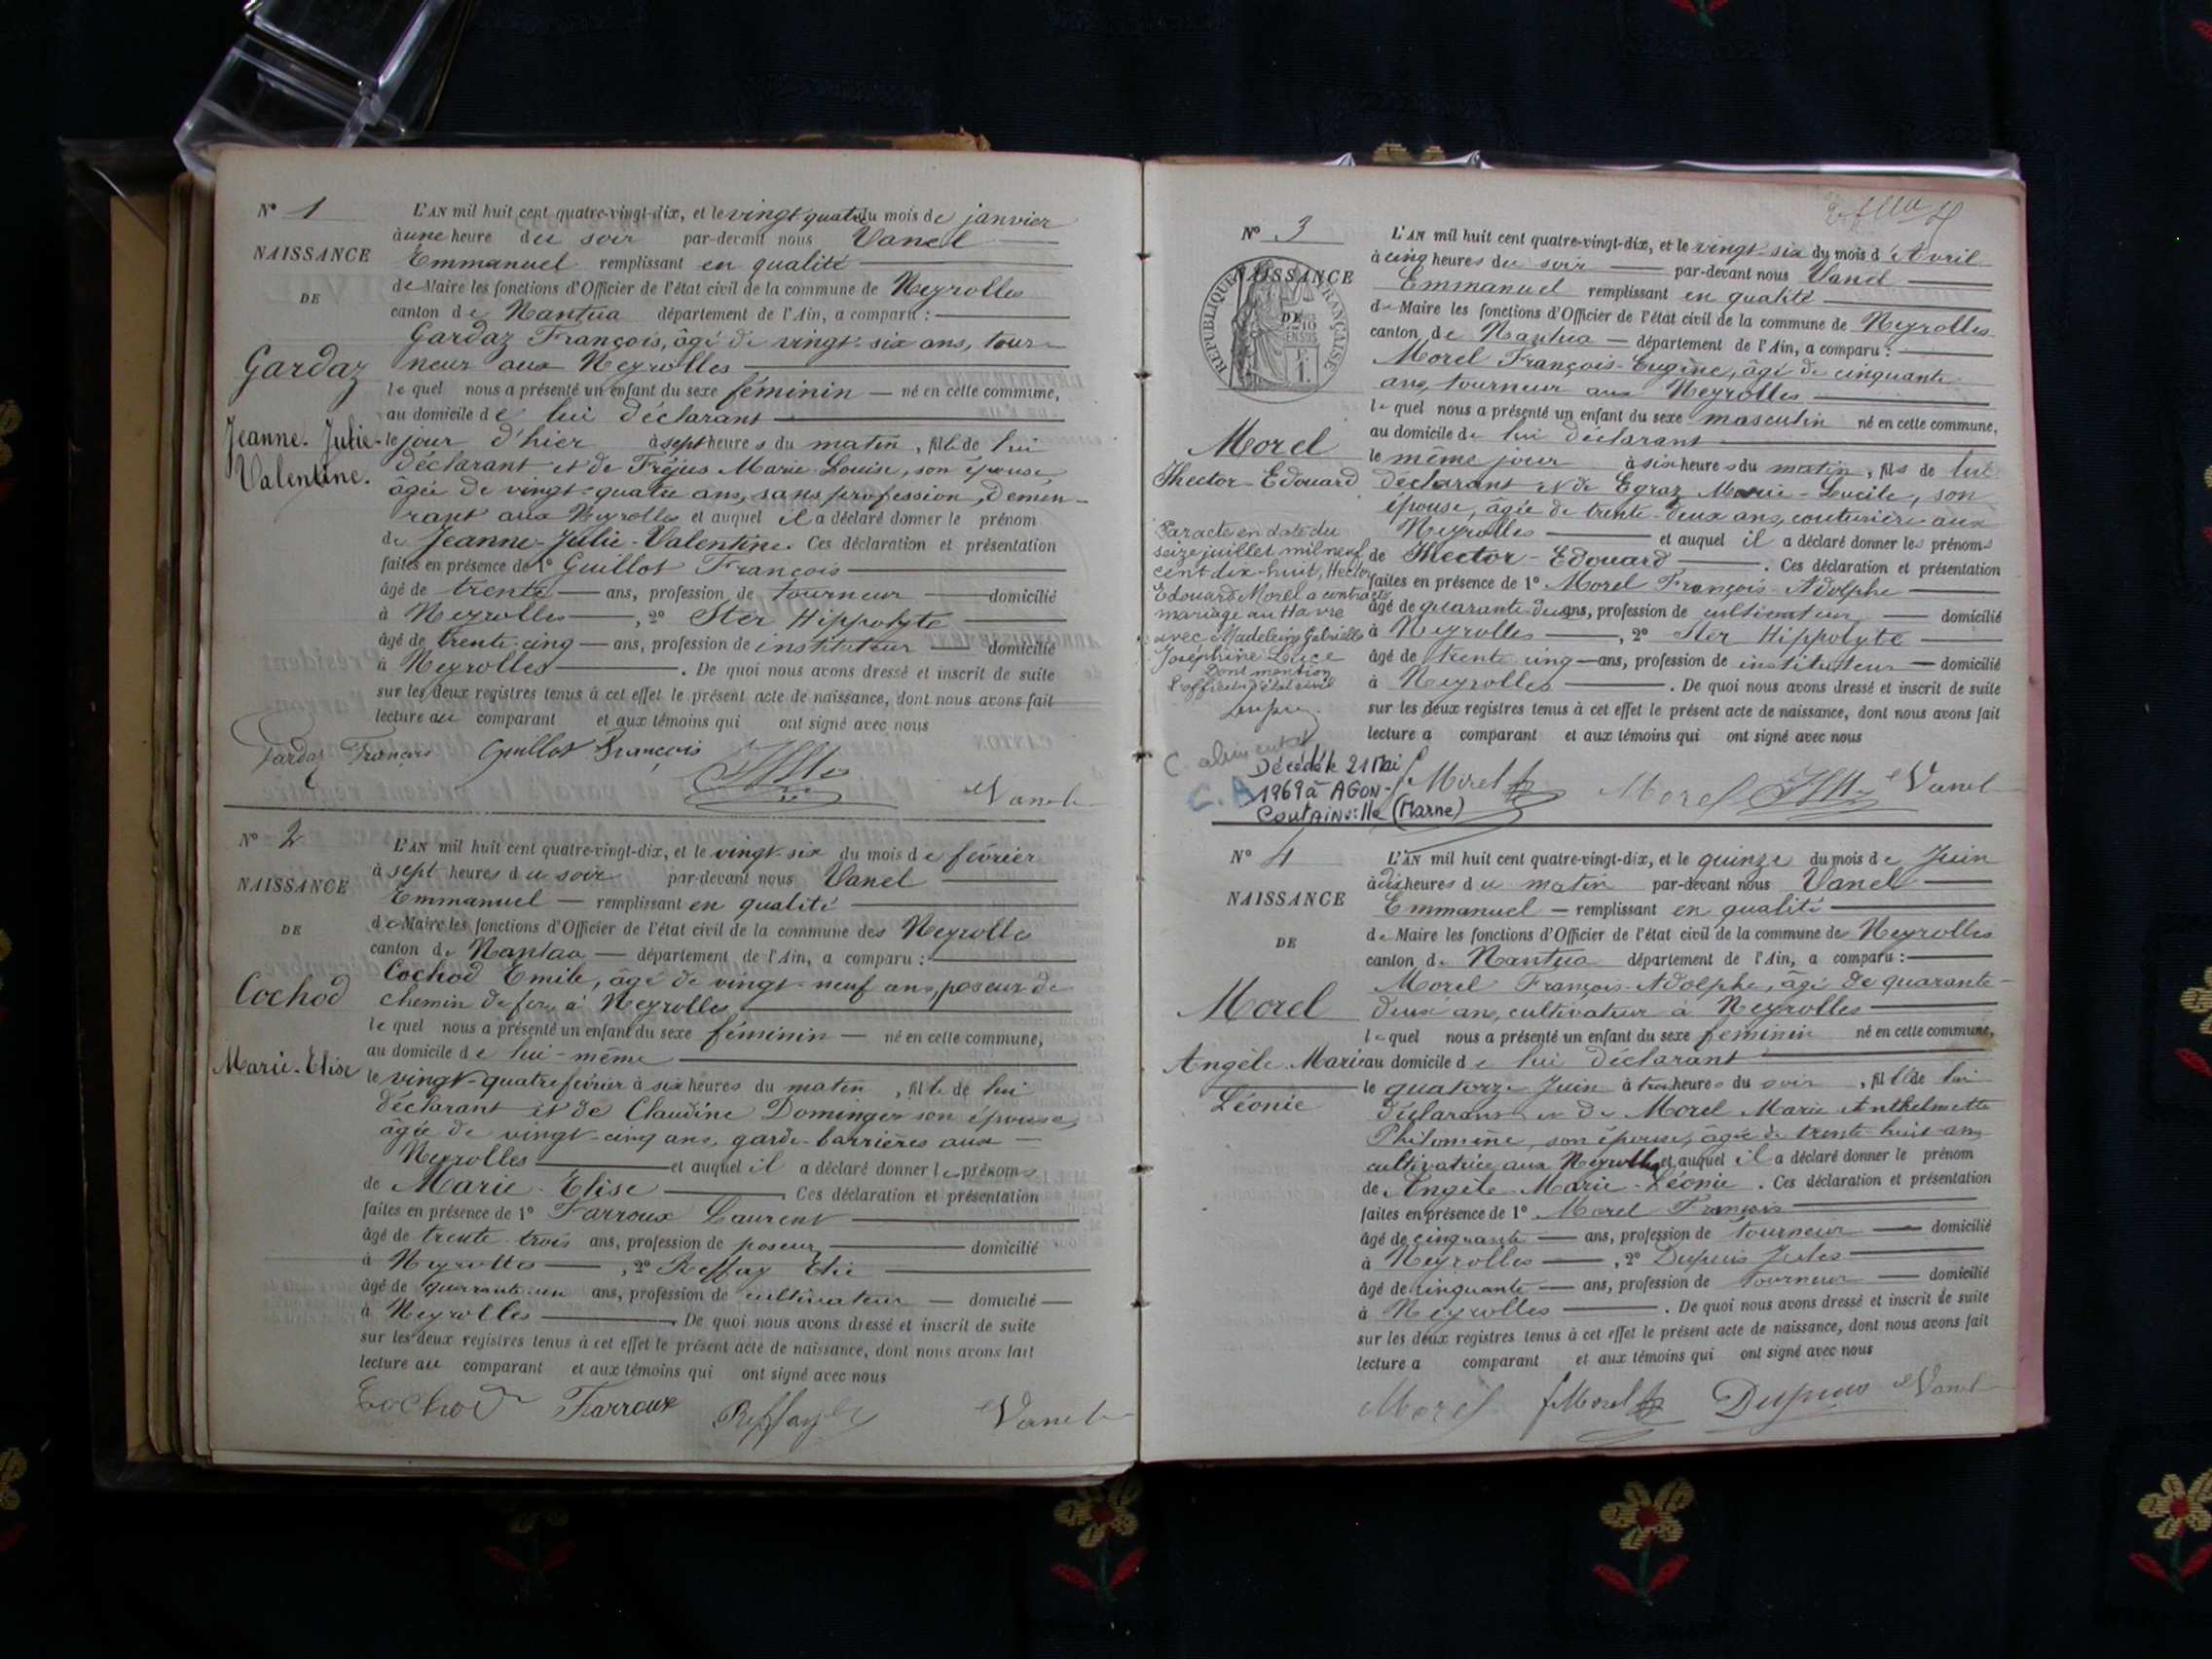 N° 1
NAISSANCE
DE
Gardaz
Jeanne-Julie-
Valentine.
L'AN mil huit cent quatre-vingt-dix, et le vingt quatre du mois de janvier
à une heure du soir par-devant nous Vanel
Emmanuel remplissant en qualité
de Maire les fonctions d'Officier de l'état civil de la commune de Neyrolles
canton de Nantua département de l'Ain, a comparu :
Gardaz François, âgé de vingt-six ans, tour-
neur aux Neyrolles
lequel nous a présenté un enfant du sexe féminin né en cette commune,
au domicile de lui déclarant
le jour d'hier à sept heures du matin, fille de lui
déclarant et de Fréjus Marie Louise, son épouse,
âgée de vingt-quatre ans, sans profession, demeu-
rant aux Neyrolles et auquel il a déclaré donner le prénom
de Jeanne-Julie-Valentine. Ces déclaration et présentation
faites en présence de 1° Guillot François
âgé de trente ans, profession de tourneur domicilié
à Neyrolles, 2° Ster Hippolyte
âgé de trente-cinq ans, profession de instituteur domicilié
à Neyrolles. De quoi nous avons dressé et inscrit de suite
sur les deux registres tenus à cet effet le présent acte de naissance, dont nous avons fait
lecture au comparant et aux témoins qui ont signé avec nous
Gardaz François Guillot François
Vanel
N° 2
NAISSANCE
DE
Cochod
Marie-Elise
L'AN mil huit cent quatre-vingt-dix, et le vingt-six du mois de février
à sept heures du soir par-devant nous Vanel
Emmanuel remplissant en qualité
de Maire les fonctions d'Officier de l'état civil de la commune des Neyrolles
canton de Nantua département de l'Ain, a comparu :
Cochod Emile, âgé de vingt-neuf ans, poseur de
chemin de fer, à Neyrolles
lequel nous a présenté un enfant du sexe féminin né en cette commune,
au domicile de lui-même
le vingt-quatre février à six heures du matin, fille de lui
déclarant et de Claudine Dominger son épouse,
âgée de vingt-cinq ans, garde-barrières aux
Neyrolles et auquel il a déclaré donner le prénoms
de Marie-Elise Ces déclaration et présentation
faites en présence de 1° Farroux Laurent
âgé de trente-trois ans, profession de poseur domicilié
à Neyrolles, 2° Reffay Elie
âgé de quarante-un ans, profession de cultivateur domicilié
à Neyrolles. De quoi nous avons dressé et inscrit de suite
sur les deux registres tenus à cet effet le présent acte de naissance, dont nous avons fait
lecture au comparant et aux témoins qui ont signé avec nous
Cochod Farroux Reffay Vanel
N° 3
NAISSANCE
DE
REPUBLIQUE FRANÇAISE
Morel
Hector-Edouard
Par acte en date du
seize juillet mil neuf
cent dix-huit, Hector
Edouard Morel a contracté
mariage au Havre
avec Madeleine Gabrielle
Joséphine Luce
Dont mention
L'officier d'état civil
Décédé le 21 Mai
1969 à AGON-
COUTAINVILLE (Marne)
C.A
L'AN mil huit cent quatre-vingt-dix, et le vingt-six du mois d'Avril
à cinq heures du soir par-devant nous Vanel
Emmanuel remplissant en qualité
de Maire les fonctions d'Officier de l'état civil de la commune de Neyrolles
canton de Nantua département de l'Ain, a comparu :
Morel François-Eugène, âgé de cinquante
ans, tourneur aux Neyrolles
lequel nous a présenté un enfant du sexe masculin né en cette commune,
au domicile de lui déclarant
le même jour à six heures du matin, fils de lui
déclarant et de Egraz Marie-Lucile, son
épouse, âgée de trente-deux ans, couturière aux
Neyrolles et auquel il a déclaré donner les prénoms
de Hector-Edouard. Ces déclaration et présentation
faites en présence de 1° Morel François-Adolphe
âgé de quarante-deux ans, profession de cultivateur domicilié
à Neyrolles, 2° Ster Hippolyte
âgé de trente cinq ans, profession de instituteur domicilié
à Neyrolles. De quoi nous avons dressé et inscrit de suite
sur les deux registres tenus à cet effet le présent acte de naissance, dont nous avons fait
lecture a comparant et aux témoins qui ont signé avec nous
Morel Morel Vanel
N° 4
NAISSANCE
DE
Morel
Angèle-Marie
Léonie
L'AN mil huit cent quatre-vingt-dix, et le quinze du mois de Juin
à dix heures du matin par-devant nous Vanel
Emmanuel remplissant en qualité
de Maire les fonctions d'Officier de l'état civil de la commune de Neyrolles
canton de Nantua département de l'Ain, a comparu :
Morel François-Adolphe, âgé de quarante-
deux ans, cultivateur à Neyrolles
lequel nous a présenté un enfant du sexe féminin né en cette commune,
au domicile de lui déclarant
le quatorze Juin à trois heures du soir, fille de lui
déclarant et de Morel Marie Anthelmette
Philomène, son épouse, âgée de trente-huit ans
cultivatrice aux Neyrolles et auquel il a déclaré donner le prénom
de Angèle-Marie-Léonie. Ces déclaration et présentation
faites en présence de 1° Morel François
âgé de cinquante ans, profession de tourneur domicilié
à Neyrolles, 2° Dupuis Jules
âgé de cinquante ans, profession de tourneur domicilié
à Neyrolles. De quoi nous avons dressé et inscrit de suite
sur les deux registres tenus à cet effet le présent acte de naissance, dont nous avons fait
lecture a comparant et aux témoins qui ont signé avec nous
Morel Morel Dupuis Vanel